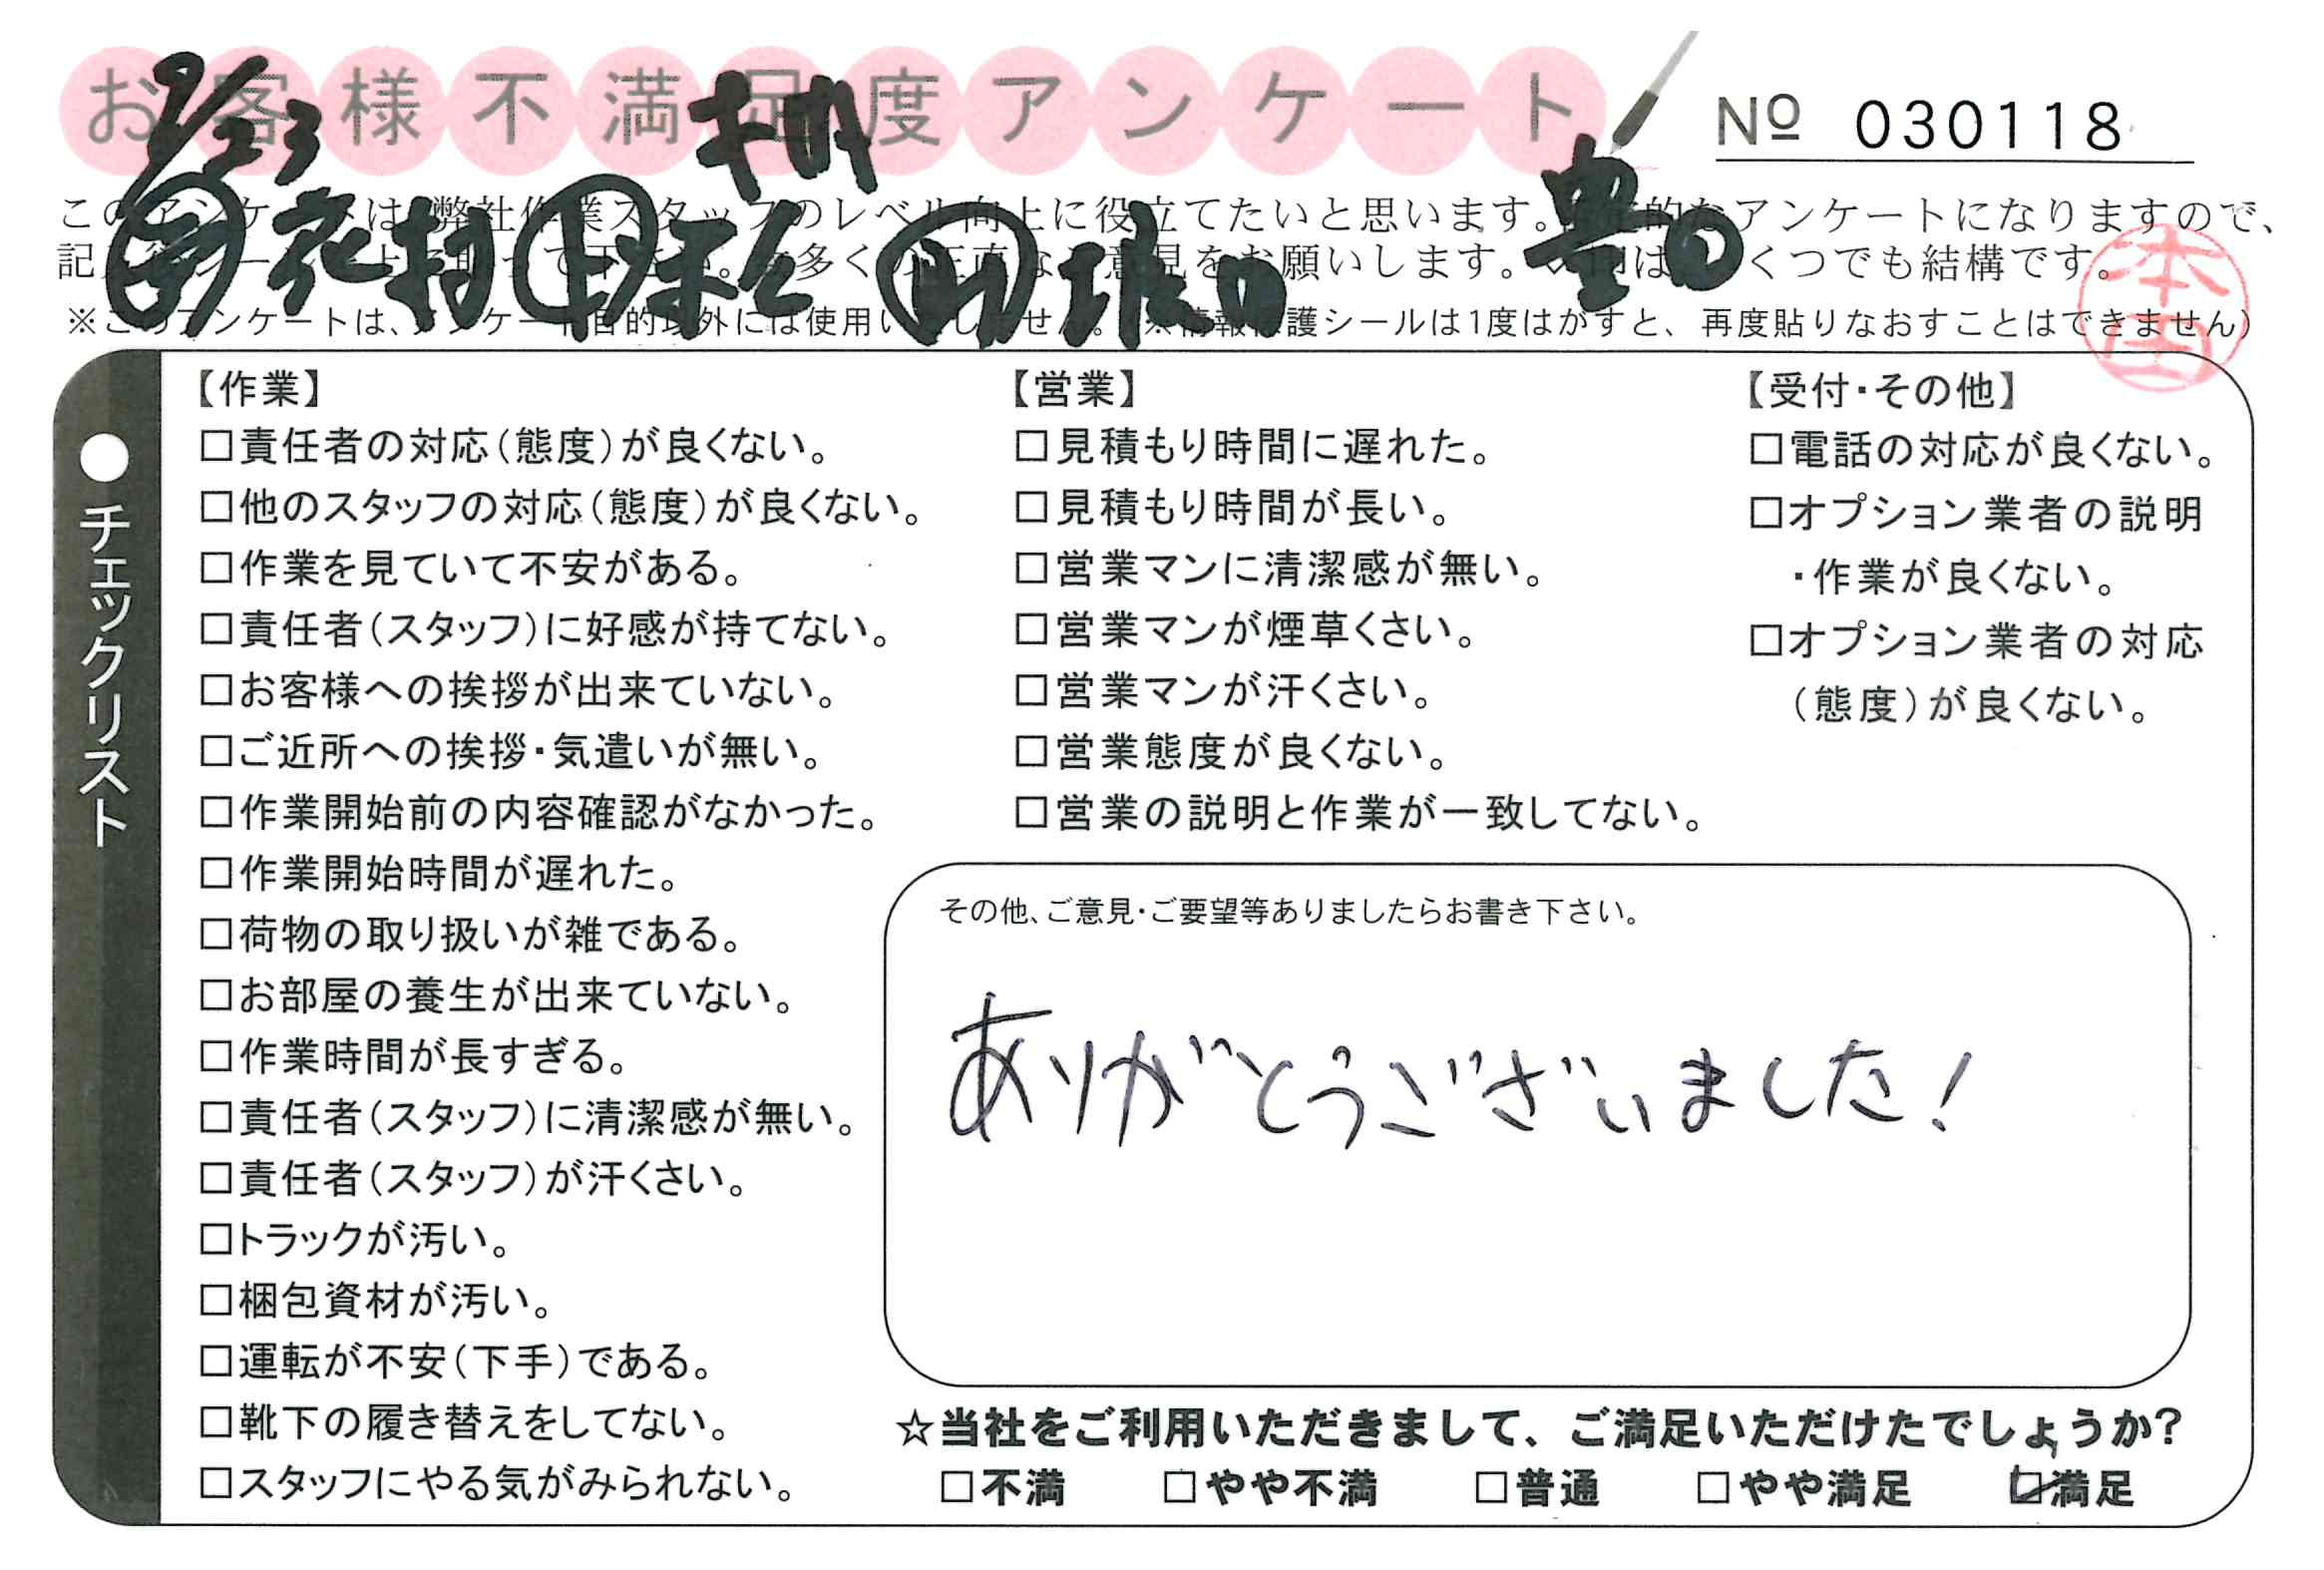 お客様不満足度アンケート
№ 030118
9/23
このアンケートは、弊社作業スタッフのレベル向上に役立てたいと思います。 的なアンケートになりますので、
記 多くの正直なご意見をお願いします。 はいくつでも結構です。
※このアンケートは、アンケート目的以外には使用いたしません。(※情報保護シールは1度はがすと、再度貼りなおすことはできません)
村 堀口 豊田
本田
●チェックリスト
【作業】
□責任者の対応(態度)が良くない。
□他のスタッフの対応(態度)が良くない。
□作業を見ていて不安がある。
□責任者(スタッフ)に好感が持てない。
□お客様への挨拶が出来ていない。
□ご近所への挨拶・気遣いが無い。
□作業開始前の内容確認がなかった。
□作業開始時間が遅れた。
□荷物の取り扱いが雑である。
□お部屋の養生が出来ていない。
□作業時間が長すぎる。
□責任者(スタッフ)に清潔感が無い。
□責任者(スタッフ)が汗くさい。
□トラックが汚い。
□梱包資材が汚い。
□運転が不安(下手)である。
□靴下の履き替えをしてない。
□スタッフにやる気がみられない。
【営業】
□見積もり時間に遅れた。
□見積もり時間が長い。
□営業マンに清潔感が無い。
□営業マンが煙草くさい。
□営業マンが汗くさい。
□営業態度が良くない。
□営業の説明と作業が一致してない。
【受付・その他】
□電話の対応が良くない。
□オプション業者の説明
・作業が良くない。
□オプション業者の対応
(態度)が良くない。
その他、ご意見・ご要望等ありましたらお書き下さい。
ありがとうございました!
☆当社をご利用いただきまして、ご満足いただけたでしょうか?
□不満 □やや不満 □普通 □やや満足 ☑満足